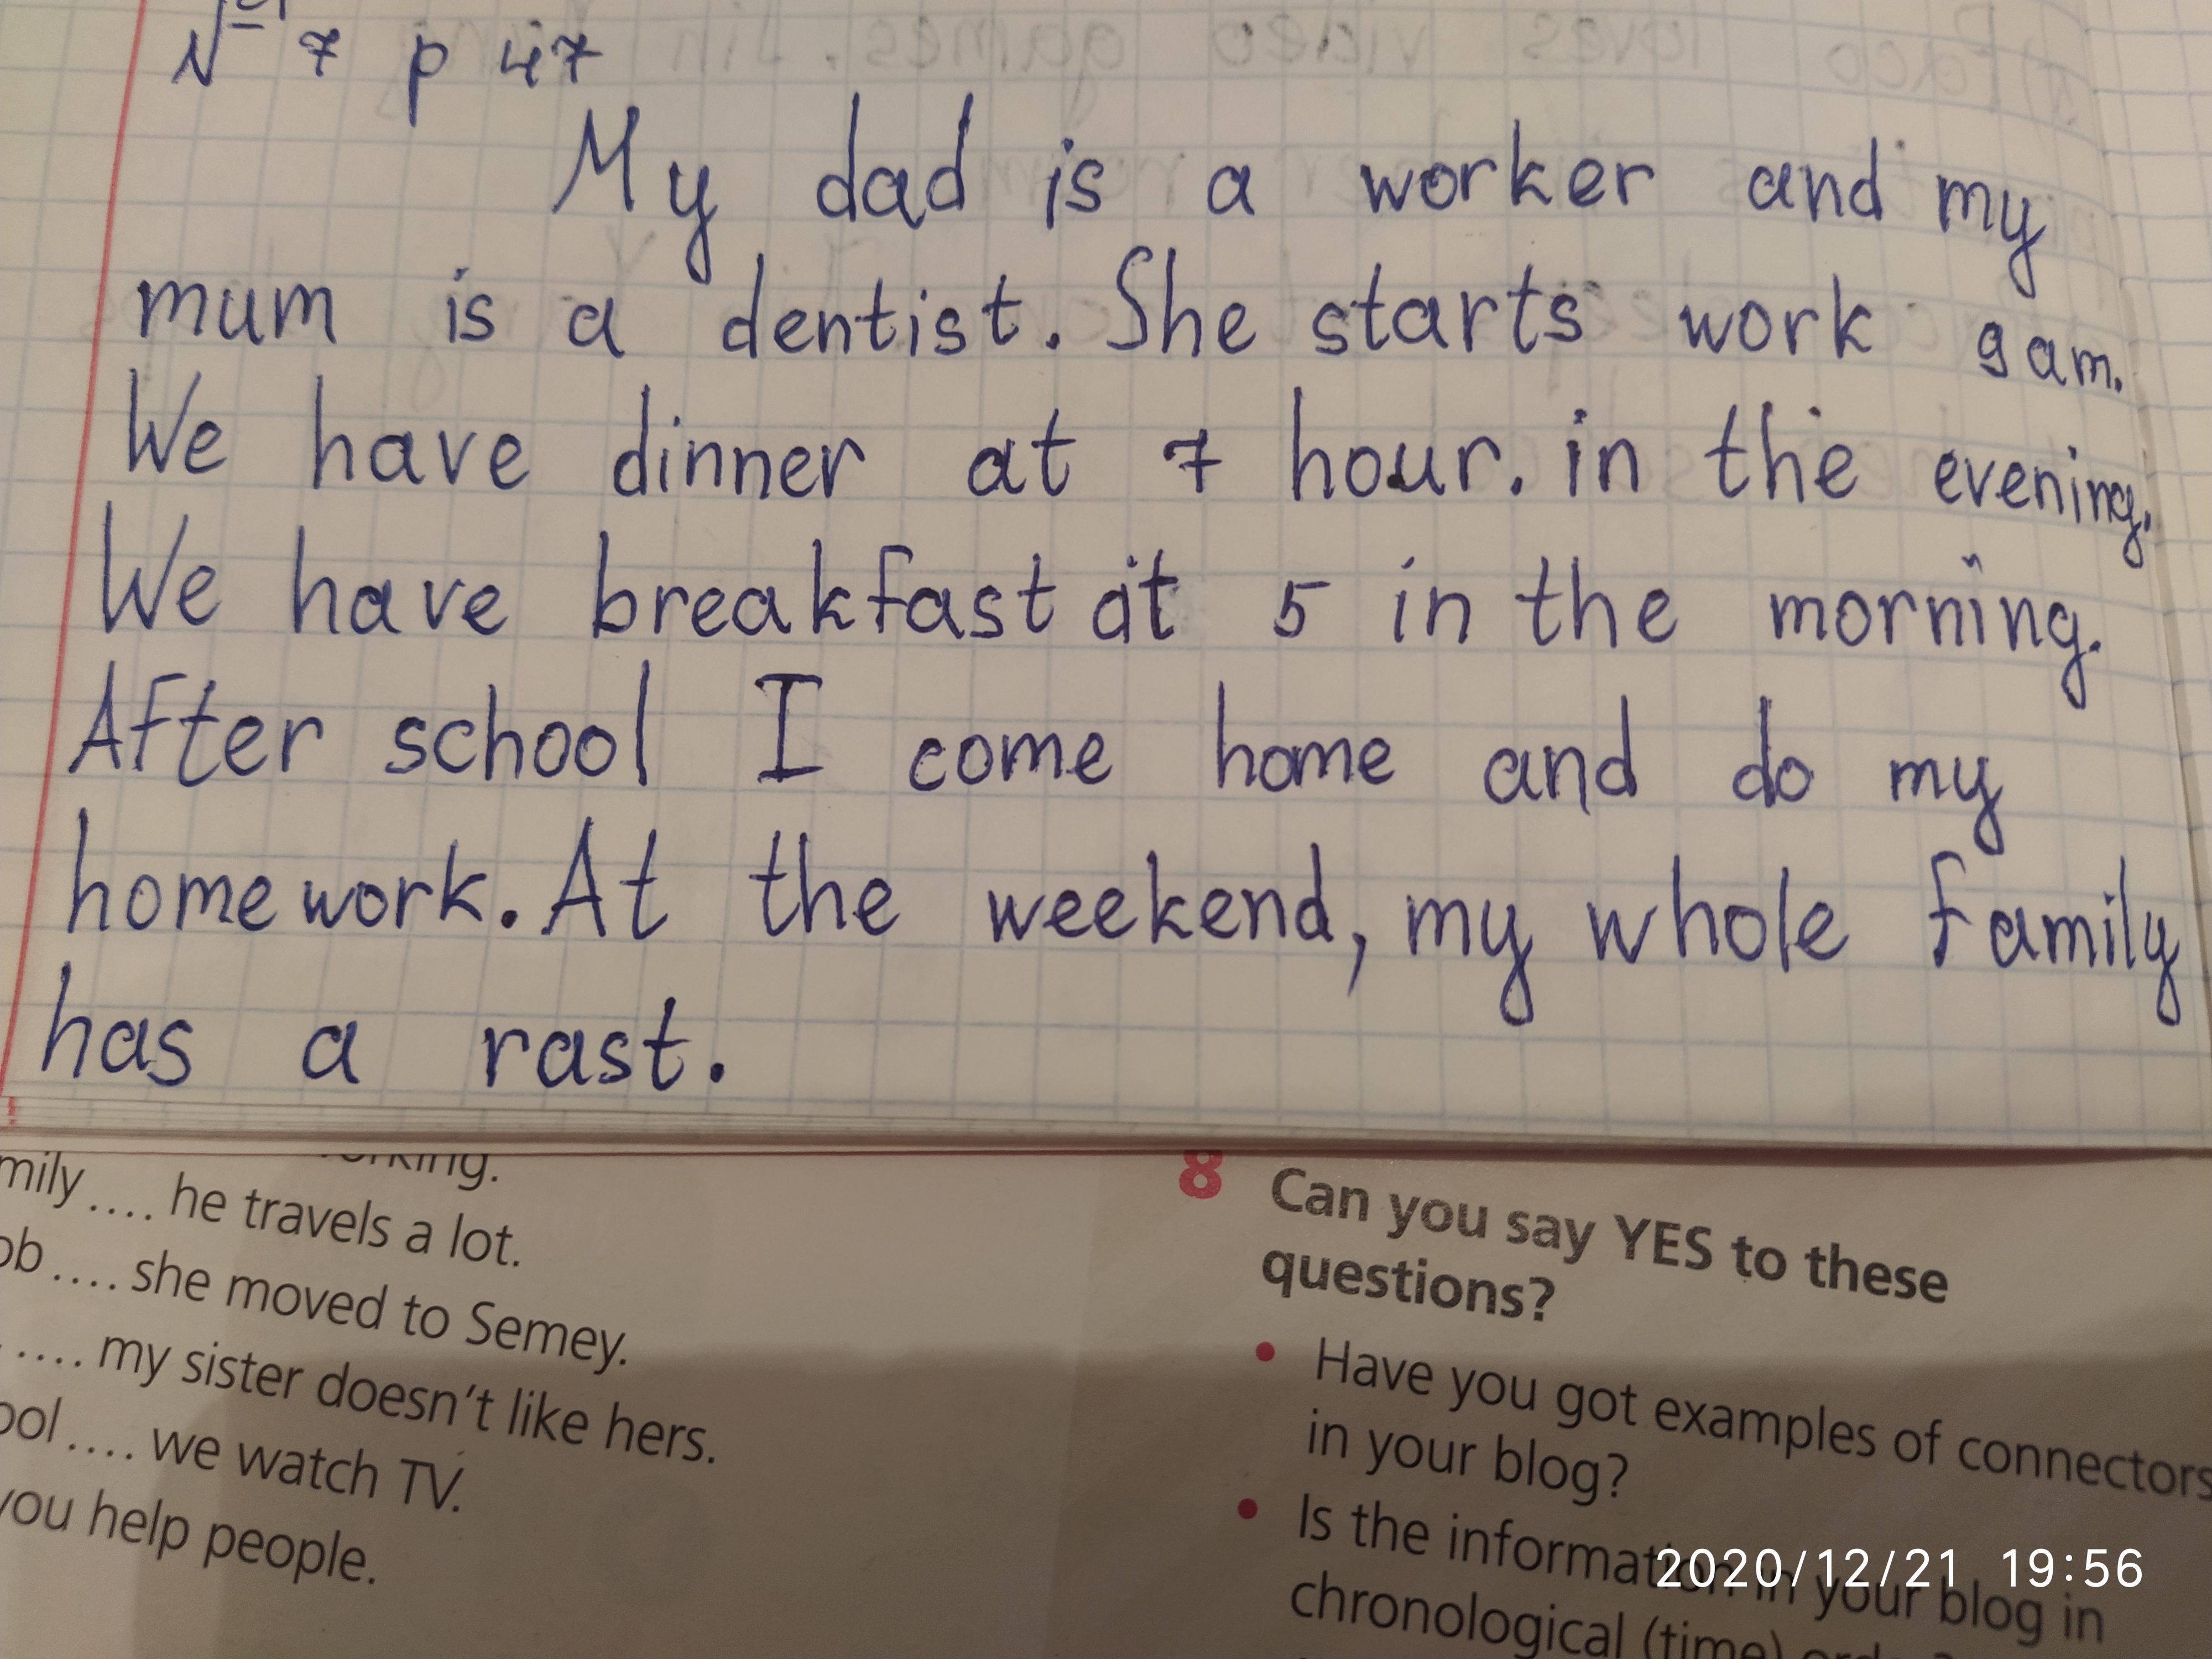 № 7 p 47
My dad is a worker and my
mum is a dentist. She starts work 9 am.
We have dinner at 7 hour. in the evening.
We have breakfast at 5 in the morning.
After school I come home and do my
homework. At the weekend, my whole family
has a rast.
he travels a lot.
.... she moved to Semey.
.... my sister doesn't like hers.
.... we watch TV.
you help people.
8 Can you say YES to these
questions?
• Have you got examples of connectors
in your blog?
• Is the information in your blog in
chronological (time)
2020/12/21 19:56